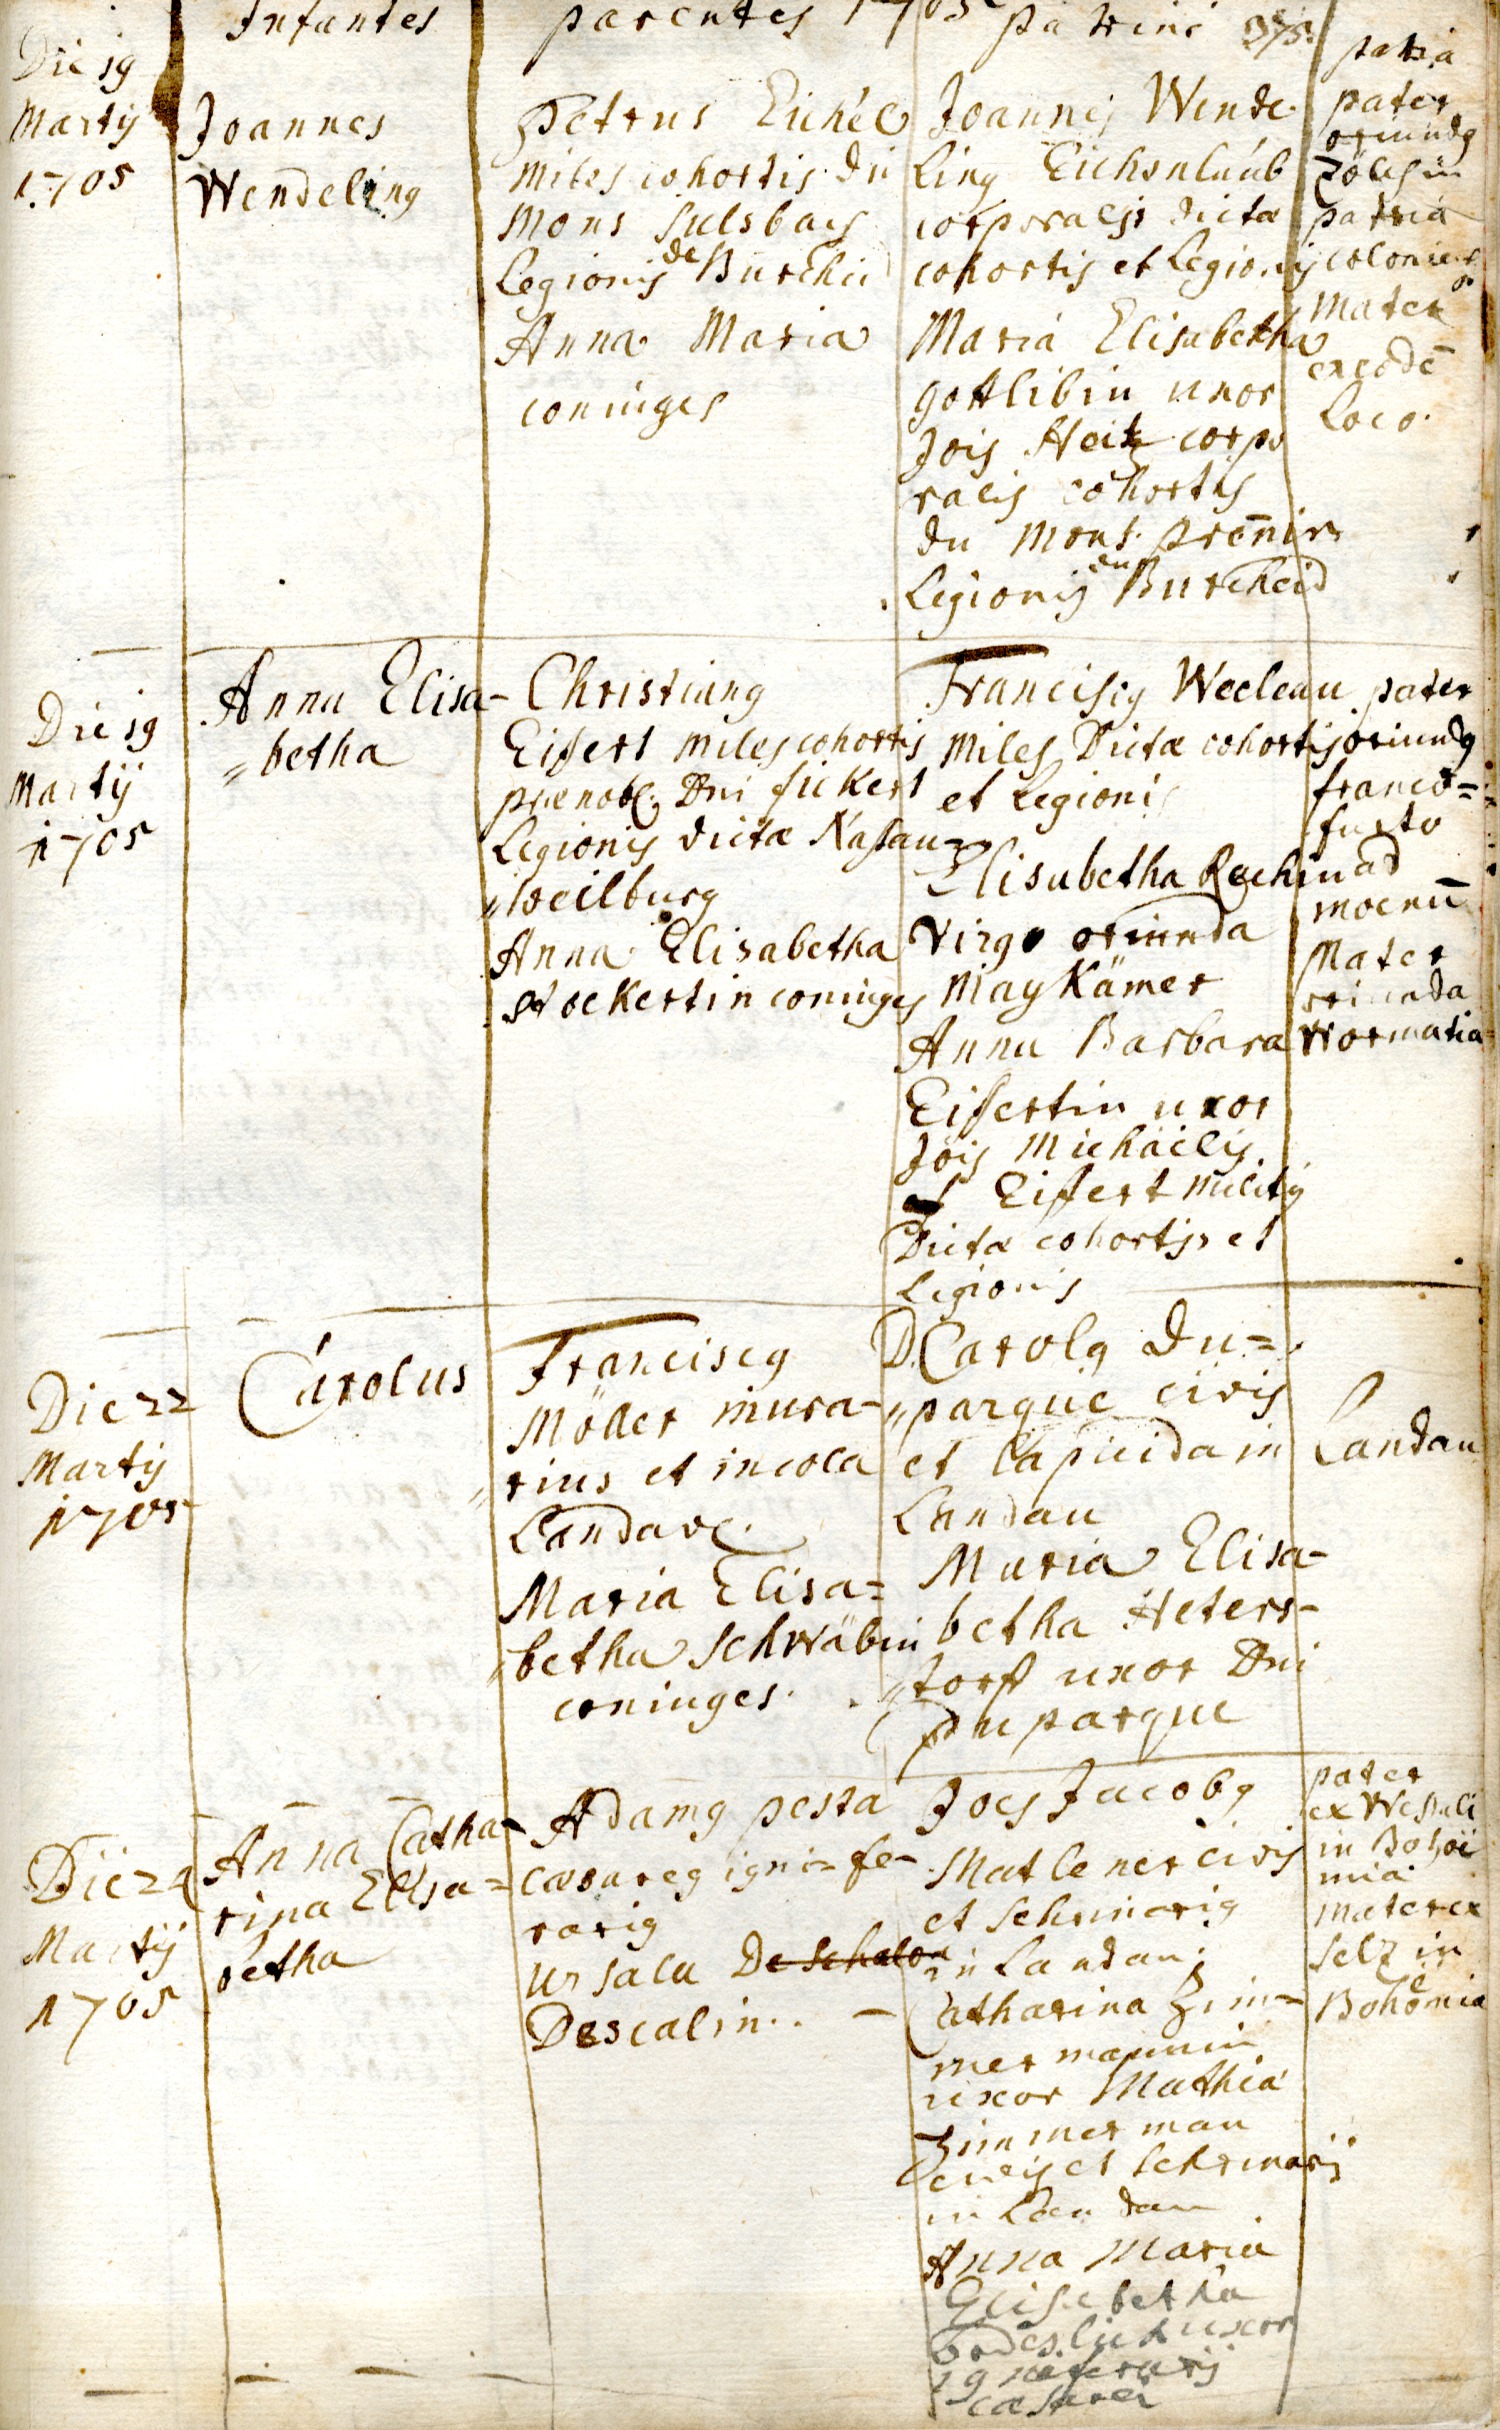 Infantes
parentes 1705
patrini
patria
Die 19
Martij
1705
Joannes
Wendeling
Petrus Eichel
miles cohortis du
Mons Sulsbach
Legionis de Burscheid
Anna Maria
coniuges
Joannes Wende
ling Eichenlaub
corporalis dictae
cohortis et Legionis
Maria Elisabetha
Gottlibin uxor
Jois Heitz corpo
ralis cohortis
du Mons.
Legionis du Burscheid
pater
oriundq
patria
coloniens
Mater
ex eodē
Loco.
Die 19
Martij
1705
Anna Elisa-
betha
Christianq
Eifert miles cohortis
prænob. Dni fickert
Legionis dictæ Nassau=
weilburg
Anna Elisabetha
Stockertin coniuges
Franciscq Weeleau
Miles Dictæ cohortis
et Legionis
Elisabetha Rechin
Virgo oriunda
May Kämer
Anna Barbara
Eifertin uxor
Jois Michaelis
Eifert militis
Dictæ cohortis et
Legionis
pater
oriundq
franco=
furto
ad
moenū
Mater
oriunda
Wormatia
Die 22
Martij
1705
Carolus
Franciscq
Möller mura-
rius et incola
Landavc.
Maria Elisa=
betha Schwäbin
coniuges.
D. Carolq Du=
parque civis
et Lapicida in
Landau
Maria Elisa-
betha Heters-
torff uxor Dni
Duparque
Landau
Die 24
Martij
1705
Anna Catha-
rina Elisa=
betha
Adamq pesta
Cæsareq igni=fe-
rariq
Ursala De Schalon
Descalin..
Joes Jacobq
Matlener civis
et Schrinariq
in Landau;
Catharina Zim=
mermannin
uxor Mathia
Zimmerman
civis et schrinarij
in Landau
Anna Maria
Elisabetha
uxor
igniferarij
cæsarei
pater
ex
in Bohoe
mia
Mater ex
Selz in
Bohemia